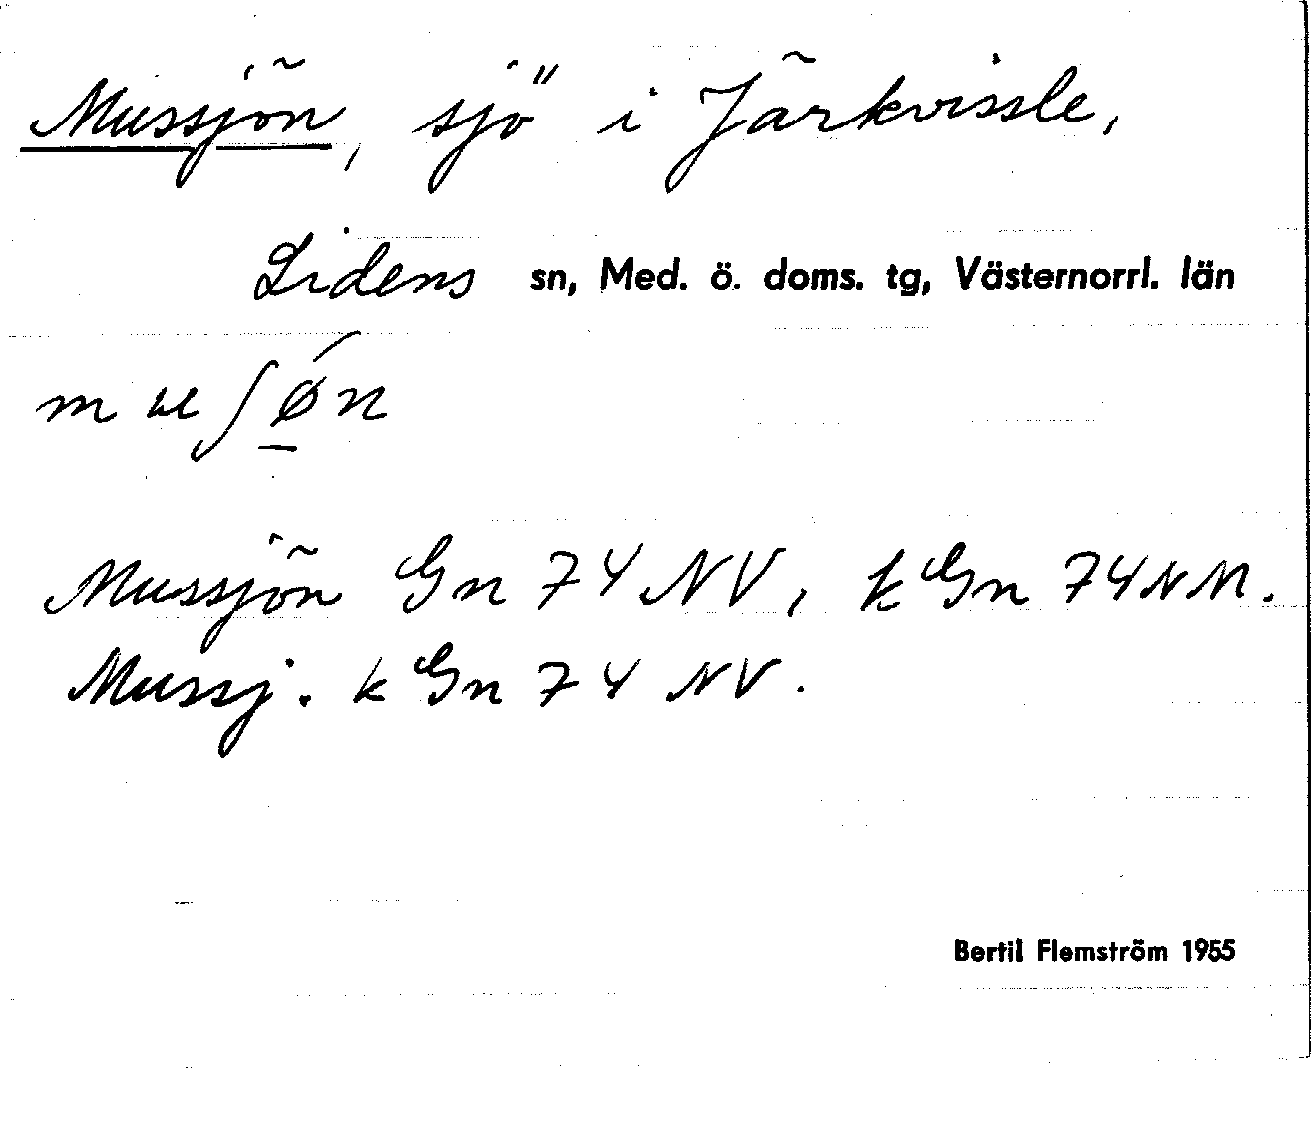 Mussjön, sjö i Järkvissle,
Lidens sn, Med. ö. doms. tg, Västernorrl. län
m ʉ ʃ ǿ̲ n
Mussjön Gn 74 NV, k Gn 74 NM.
Mussj. k Gn 74 NV.
Bertil Flemström 1955